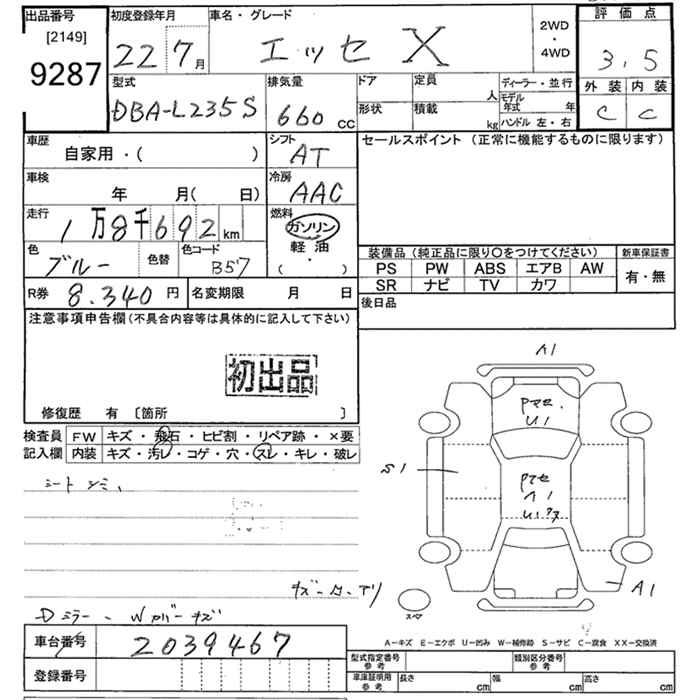 出品番号
[2149]
9287
初度登録年月
22 7月
車名・グレード
エッセ X
2WD
・
4WD
評価点
3.5
型式
DBA-L235S
排気量
660 CC
ドア
定員
人
形状
積載
kg
ディーラー・並行
モデル年式 年
ハンドル 左・右
外装 内装
C C
車歴
自家用・( )
シフト
AT
セールスポイント (正常に機能するものに限ります)
車検
年 月(日)
冷房
AAC
走行
1万8千692km
燃料
ガソリン
軽油
・
( )
色
ブルー
色替
色コード
B57
装備品 (純正品に限り○をつけてください)
新車保証書
PS PW ABS エアB AW
SR ナビ TV カワ
有・無
R券 8.340円
名変期限 月 日
後日品
注意事項申告欄(不具合内容等は具体的に記入して下さい)
初出品
修復歴 有 〔箇所 〕
検査員
記入欄
FW キズ・飛石・ヒビ割・リペア跡・×要
内装 キズ・汚レ・コゲ・穴・スレ・キレ・破レ
シートシミ、
Dミラー、Wカバーキズ
A1
U1
S1
A1
U1
A1
スペア
A-キズ E-エクボ U-凹み W-補修跡 S-サビ C-腐食 XX-交換済
車台番号 2039467
登録番号
型式指定番号
参考
類別区分番号
参考
車庫証明用
参考
長さ cm
幅 cm
高さ cm